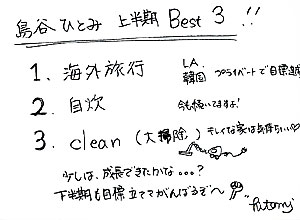 島谷ひとみ 上半期 Best 3 !!
1. 海外旅行 LA. 韓国 プライベートで目標達
2. 自炊 今も続いてますよ!
3. clean (大掃除) キレイな家は気持ちいい♡
少しは、成長できたかな...?
下半期も目標立ててがんばるぞ〜
hitomi